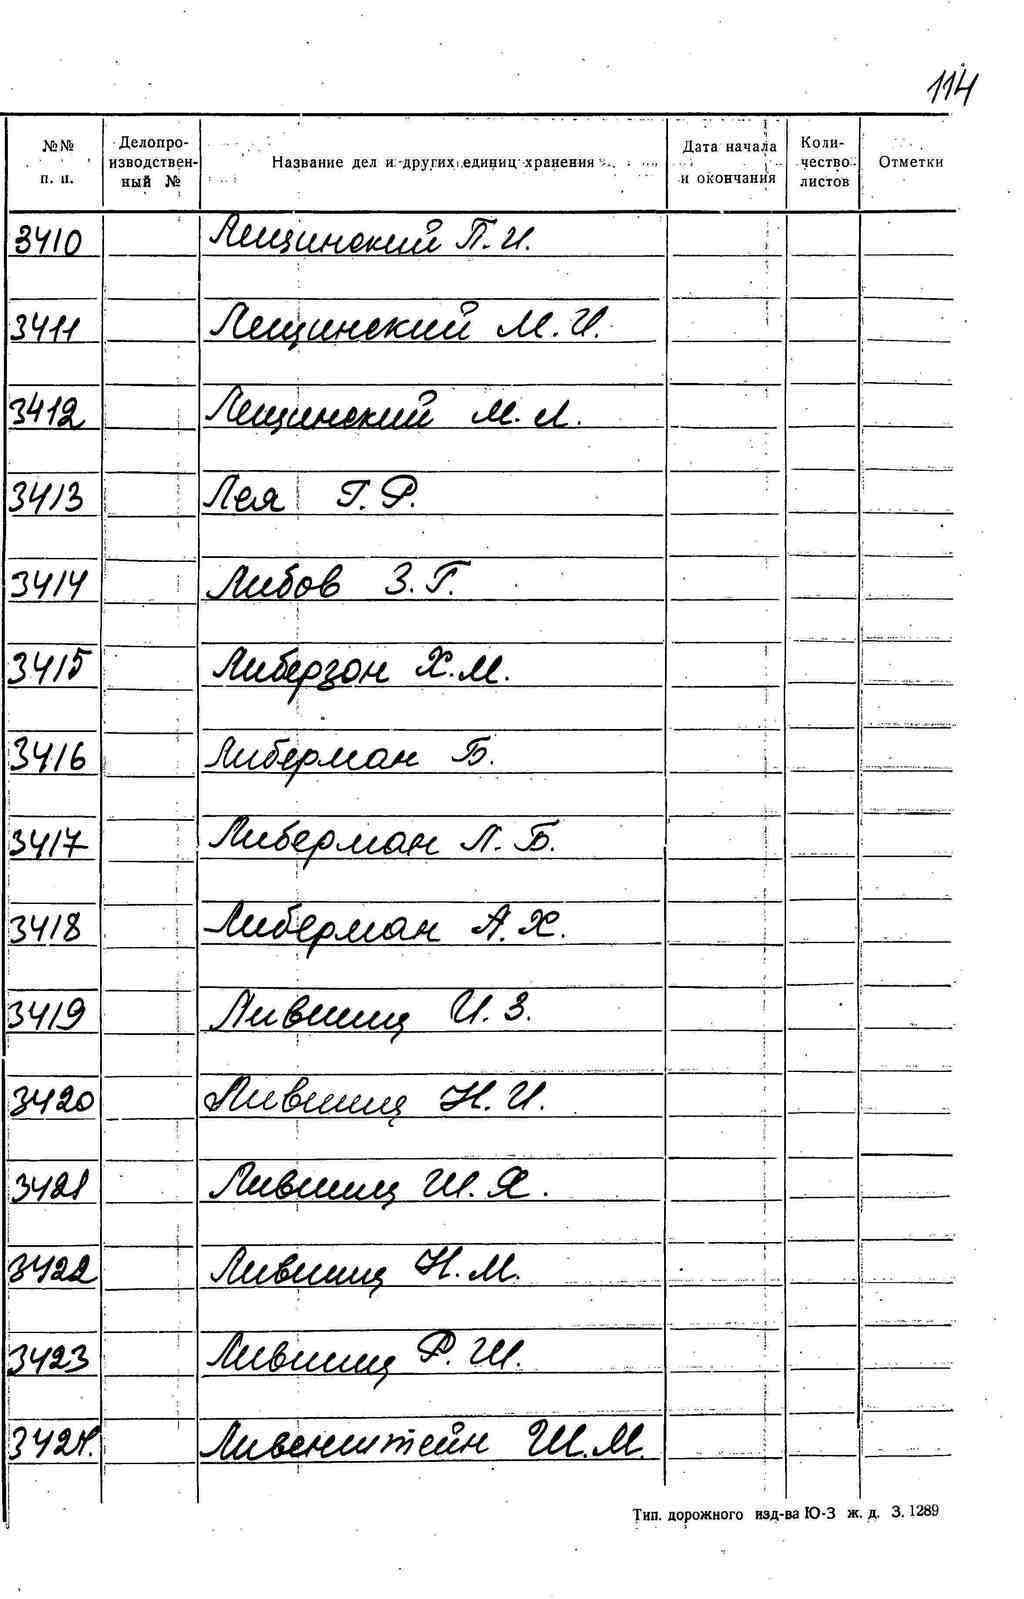 114
№№ п. п. Делопроизводственный № Название дел и других единиц хранения Дата начала и окончания Количество листов Отметки
3410 Лещинский П. И.
3411 Лещинский М. И.
3412 Лещинский М. Л.
3413 Лея Г. Р.
3414 Либов З. Г.
3415 Либерзон Х. М.
3416 Либерман Б.
3417 Либерман Л. Б.
3418 Либерман А. Х.
3419 Лившиц И. З.
3420 Лившиц Н. И.
3421 Лившиц Ш. Я.
3422 Лившиц Н. М.
3423 Лившиц Р. Ш.
3424. Ливенштейн Ш. М.
Тип. дорожного изд-ва Ю-З ж. д. З. 1289